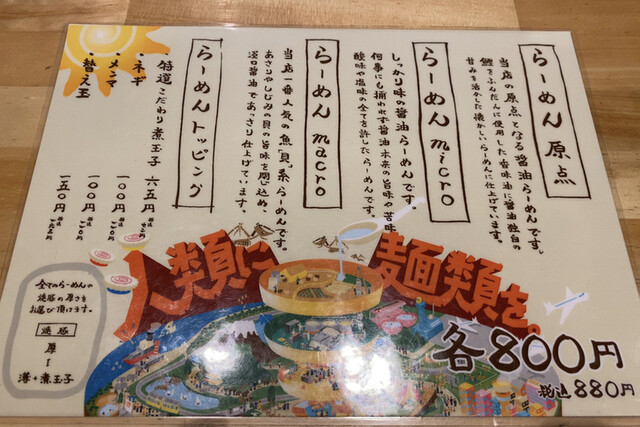 らーめん 原点
当店の原点となる醤油らーめんです。
鰹をふんだんに使用した香味油に醤油独自の
甘みを活かした懐かしいらーめんに仕上げています。
らーめん micro
しっかり味の醤油らーめんです。
何事にも捕われず醤油本来の旨味や苦味
酸味や塩味の全てを許したらーめんです。
らーめん macro
当店一番人気の魚「貝」系らーめんです。
あさりやしじみの貝の旨味を閉じ込め、
淡口醤油であっさり仕上げています。
らーめんトッピング
特選こだわり煮玉子 六五円
・ネギ 一〇〇円
・メンマ 一〇〇円
・替え玉 一五〇円
全てのらーめんの
焼豚の厚さを
お選び頂けます。
焼豚
厚
薄+煮玉子
人類に
麺類を。
各800円
税込880円